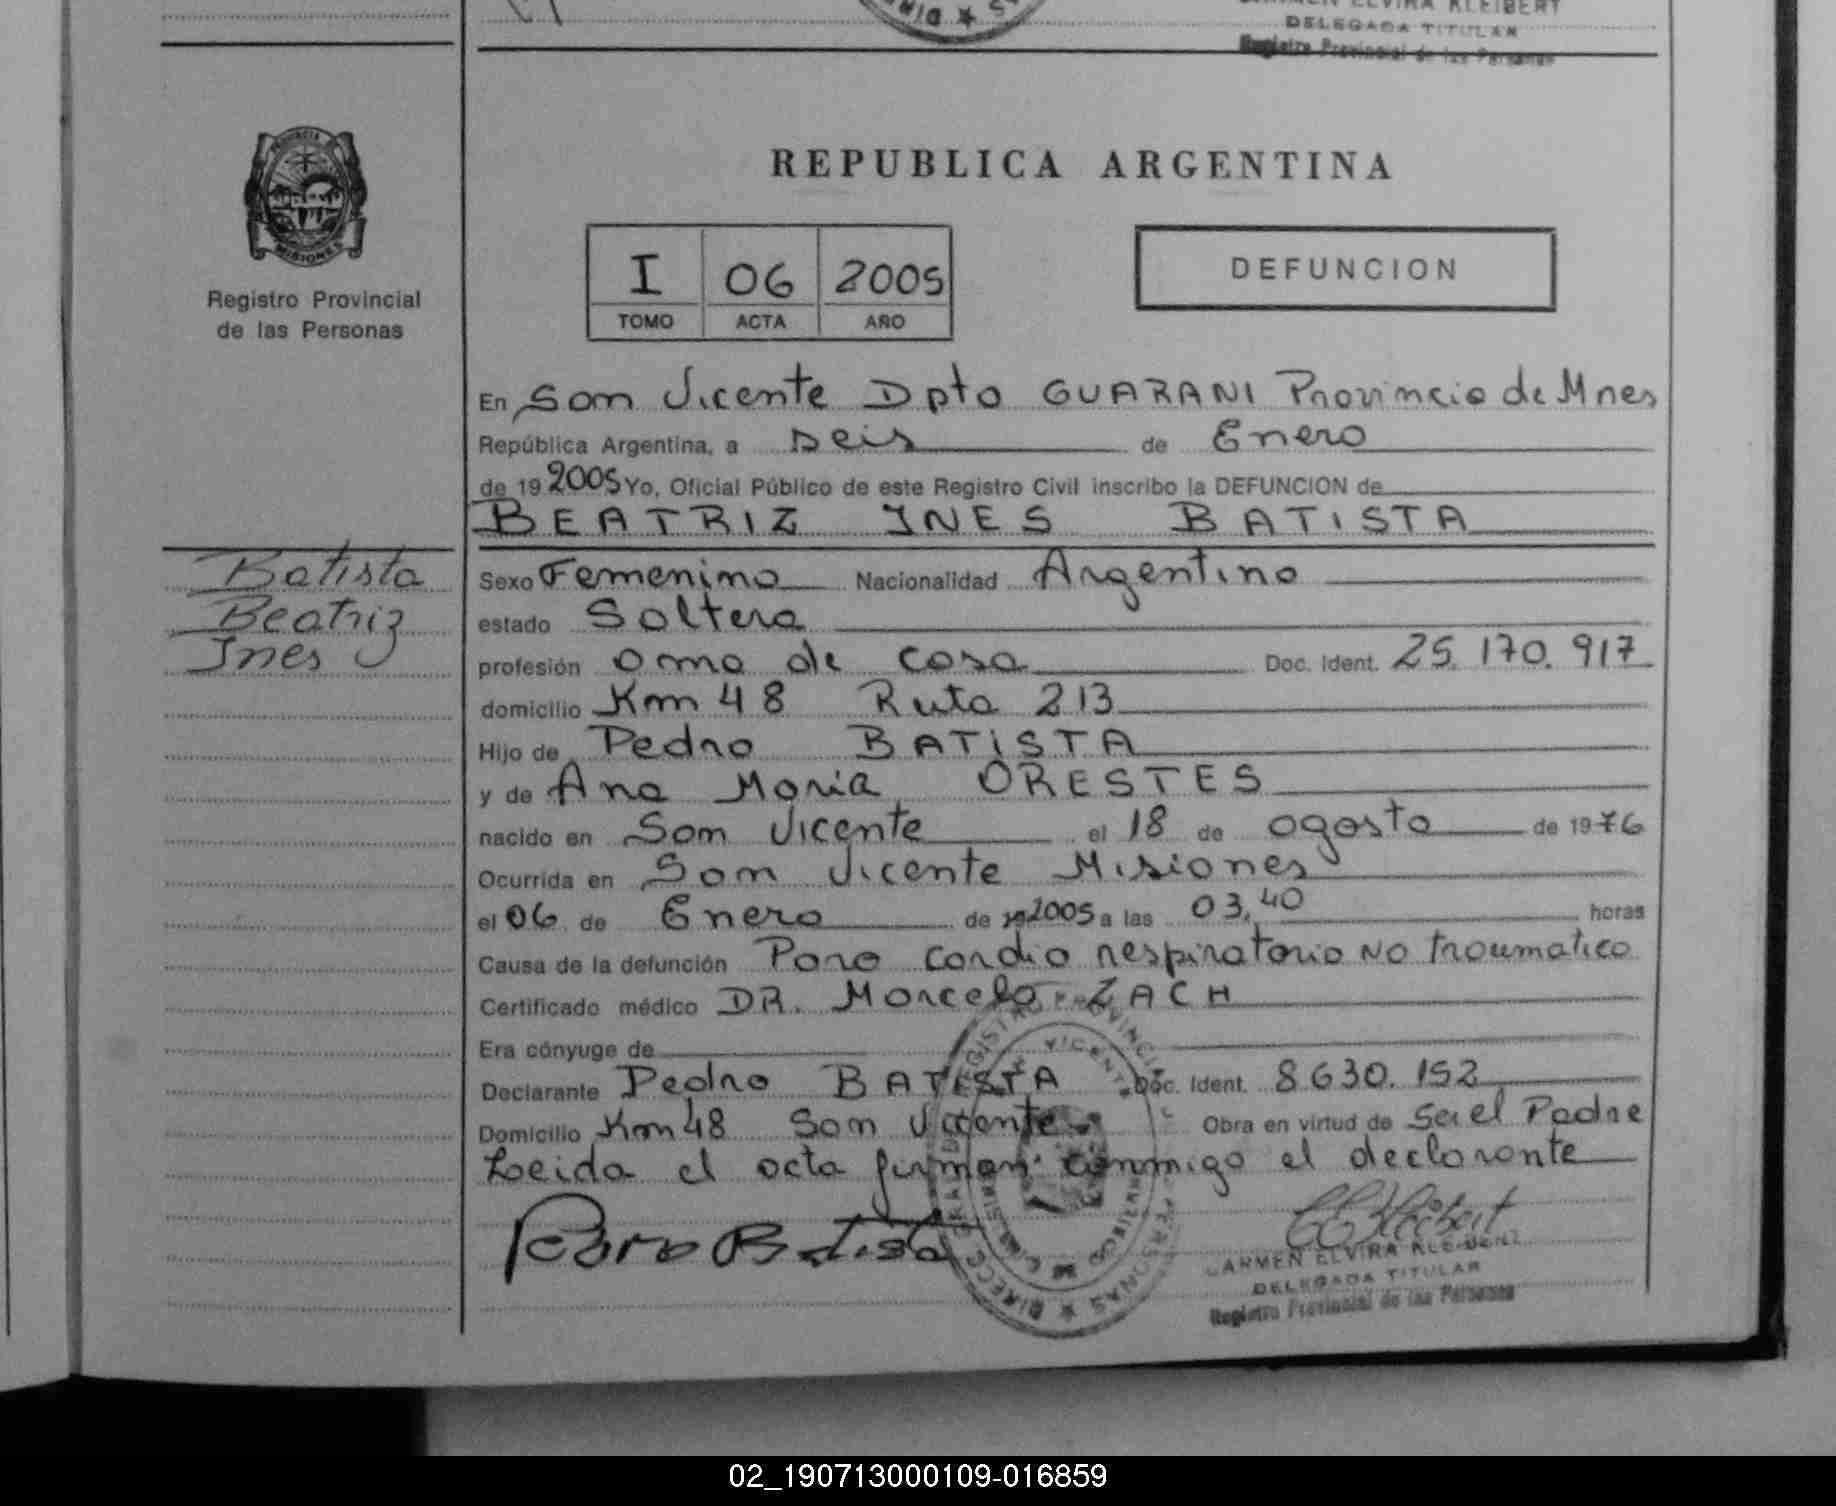 CARMEN ELVIRA KLEIBERT
DELEGADA TITULAR
Registro Provincial de las Personas
PROVINCIA
MISIONES
Registro Provincial
de las Personas
REPUBLICA ARGENTINA
I 06 2005
TOMO ACTA AÑO
DEFUNCION
En San Vicente Dpto GUARANI Provincia de Mnes
República Argentina, a seis de Enero
de 19 2005 Yo, Oficial Público de este Registro Civil inscribo la DEFUNCION de
BEATRIZ INES BATISTA
Batista
Beatriz
Ines
Sexo Femenino Nacionalidad Argentina
estado Soltera
profesión ama de casa Doc. Ident. 25.170.917
domicilio Km 48 Ruta 213
Hijo de Pedro BATISTA
y de Ana Maria ORESTES
nacido en San Vicente el 18 de agosto de 1976
Ocurrida en San Vicente Misiones
el 06 de Enero de 19 2005 a las 03,40 horas
Causa de la defunción Paro cardio respiratorio NO traumatico
Certificado médico DR. Marcelo ZACH
Era cónyuge de
Declarante Pedro BATISTA Doc. Ident. 8630.152
Domicilio Km 48 San Vicente Obra en virtud de Ser el Padre
Leida el acta firman conmigo el declarante
Pedro Batista
CARMEN ELVIRA KLEIBERT
DELEGADA TITULAR
Registro Provincial de las Personas
02_190713000109-016859